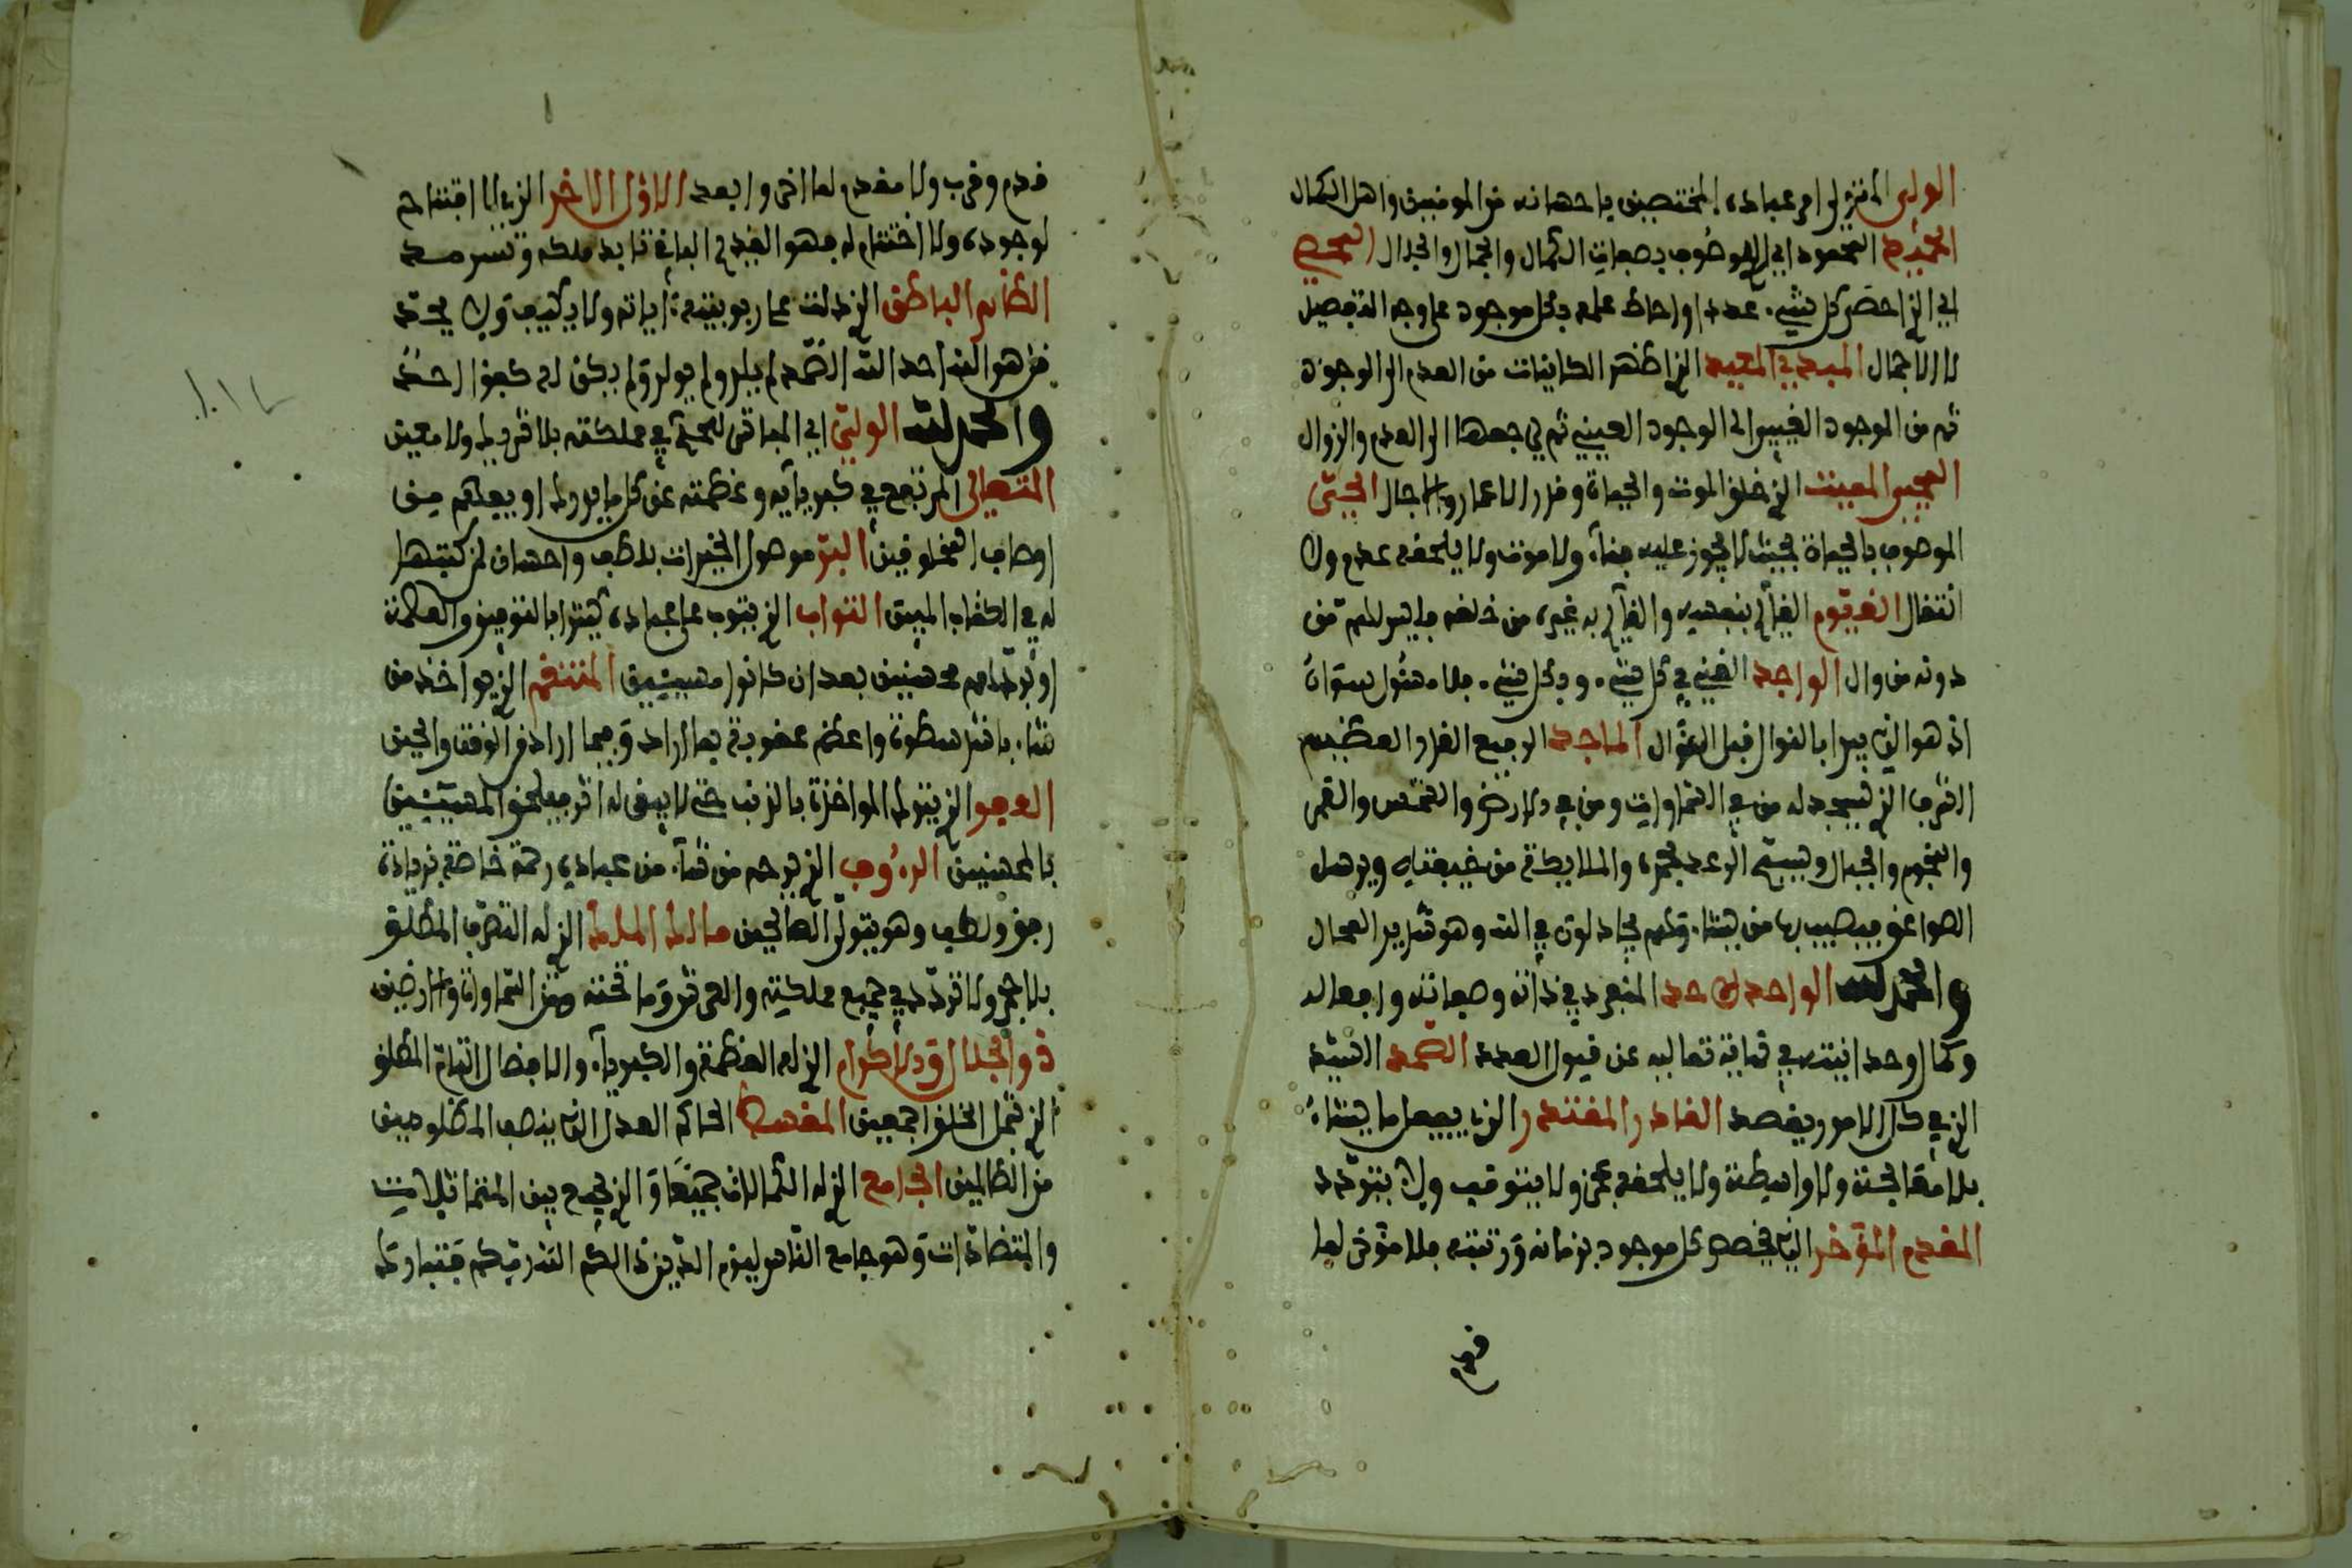 الولي المتولي امر عباده المختصين باحسانه من المومنين واهل الكمال
الحميد المحمود اي الموصوف بصفات الكمال والجمال والجلال المحصي
اي الذي احصى كل شيء عددا واحاط علمه بكل موجود على وجه التفصيل
لا الاجمال المبدي المعيد الذي اظهر الكاينات من العدم الى الوجود
ثم من الوجود الغيبي الى الوجود العيني ثم يرجعها الى العدم والزوال
المحيي المميت الذي خلق الموت والحياة وقدر الاعمار والاجال الحي
الموصوف بالحياة بحيث لا يجوز عليه فناء ولا موت ولا يلحقه عدم ولا
انتقال القيوم القايم بنفسه والقايم به غيره من خلقه فليس لهم من
دونه من وال الواجد الغني في كل شيء وبكل شيء فلا مسئول سواه
اذ هو الذي يبدا بالنوال قبل السؤال الماجد الرفيع القدر العظيم
الشرف الذي يسجد له من في السماوات ومن في الارض والشمس والقمر
والنجوم والجبال ويسبح الرعد بحمده والملايكة من خيفته ويرسل
الصواعق فيصيب بها من يشاء وهم يجادلون في الله وهو شديد المحال
والحمد لله الواحد الاحد المنفرد في ذاته وصفاته وافعاله
وكمال وحدانيته في تعاليه عن قبول العدد الصمد السيد
الذي في كل الامور يقصد القادر المقتدر الذي يفعل ما يشاء
بلا معالجة ولا واسطة ولا يلحقه عجز ولا يتوقف ولا يتردد
المقدم المؤخر الذي خصص كل موجود بزمانه ورتبته فلا مؤخر لما
قدم
قدم وقرب ولا مقدم لما اخر وابعد الاول الاخر الذي لا افتتاح
لوجوده ولا اختتام له فهو القديم الباقي تابد ملكه وتسرمد
الظاهر الباطن الذي دلت على ربوبيته اياته ولا يكيف ولا يحد
قل هو الله احد الله الصمد لم يلد ولم يولد ولم يكن له كفوا احد
والحمد لله الولي اي المباشر للحكم في مملكته بلا شريك ولا معين
المتعالي المرتفع في كبريايه وعظمته عن كل ما يدرك او يفهم من
اوصاف المخلوقين البر موصل الخيرات بلطف واحسان لمن كتبها
له في الكتاب المبين التواب الذي يتوب على عباده يبتدا بالتوفيق والهداية
او يردهم محسنين بعد ان كانوا مسيئين المنتقم الذي يواخذ من
شاء باشد سطوة واعظم عقوبة بما اراد وفيما اراد في الوقت والحين
العفو الذي يترك المواخذة بالذنب حتى لا يبقى له اثر فيلحق المسيئين
بالمحسنين الرءوف الذي يرحم من شاء من عباده رحمة خاصة بزيادة
رفق ولطف وهو يتولى الصالحين مالك الملك الذي له التصرف المطلق
بلا حجر ولا تردد في جميع مملكته والعرش وما تحته من السماوات والارضين
ذو الجلال والاكرام الذي له العظمة والكبرياء والافضال التام المطلق
الذي شمل الخلق اجمعين المقسط الحاكم العدل الذي ينصف المظلومين
من الظالمين الجامع الذي له الكمالات جميعا والذي يجمع بين المتماثلات
والمتضادات وهو جامع الناس ليوم الدين ذالكم الله ربكم فتبارك